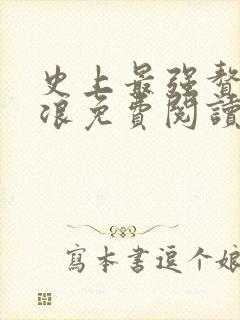 史上最强赘
浪免費閱讀
寫本書逗个娘